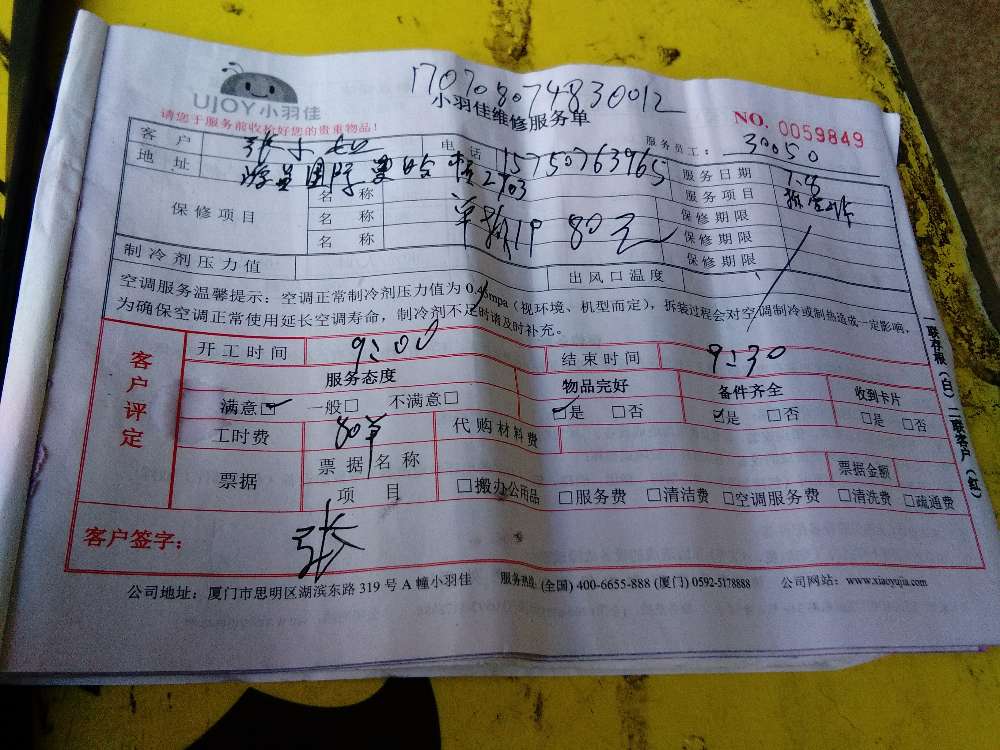 170708074830012
UJOY小羽佳
小羽佳维修服务单
NO. 0059849
请您于服务前收检好您的贵重物品!
服务员工: 30050
客户 张小姐 电话 15750763965 服务日期 7.8
地址 2703 服务项目
保修项目 名称 保修期限
名称 80元 保修期限
名称 保修期限
制冷剂压力值 出风口温度
空调服务温馨提示:空调正常制冷剂压力值为0.45mpa(视环境、机型而定),拆装过程会对空调制冷或制热造成一定影响,
为确保空调正常使用延长空调寿命,制冷剂不足时请及时补充。
客户评定
开工时间 9:00 结束时间 9:30
服务态度 物品完好 备件齐全 收到卡片
满意☑ 一般□ 不满意□ ☑是 □否 ☑是 □否 □是 □否
工时费 80单 代购材料费
票据 票据名称 票据金额
项目 □搬办公用品 □服务费 □清洁费 □空调服务费 □清洗费 □疏通费
客户签字: 张
一联存根(白) 二联客户(红)
公司地址:厦门市思明区湖滨东路319号A幢小羽佳 服务热线:(全国)400-6655-888 (厦门)0592-5178888 公司网站:www.xiaoyujia.com